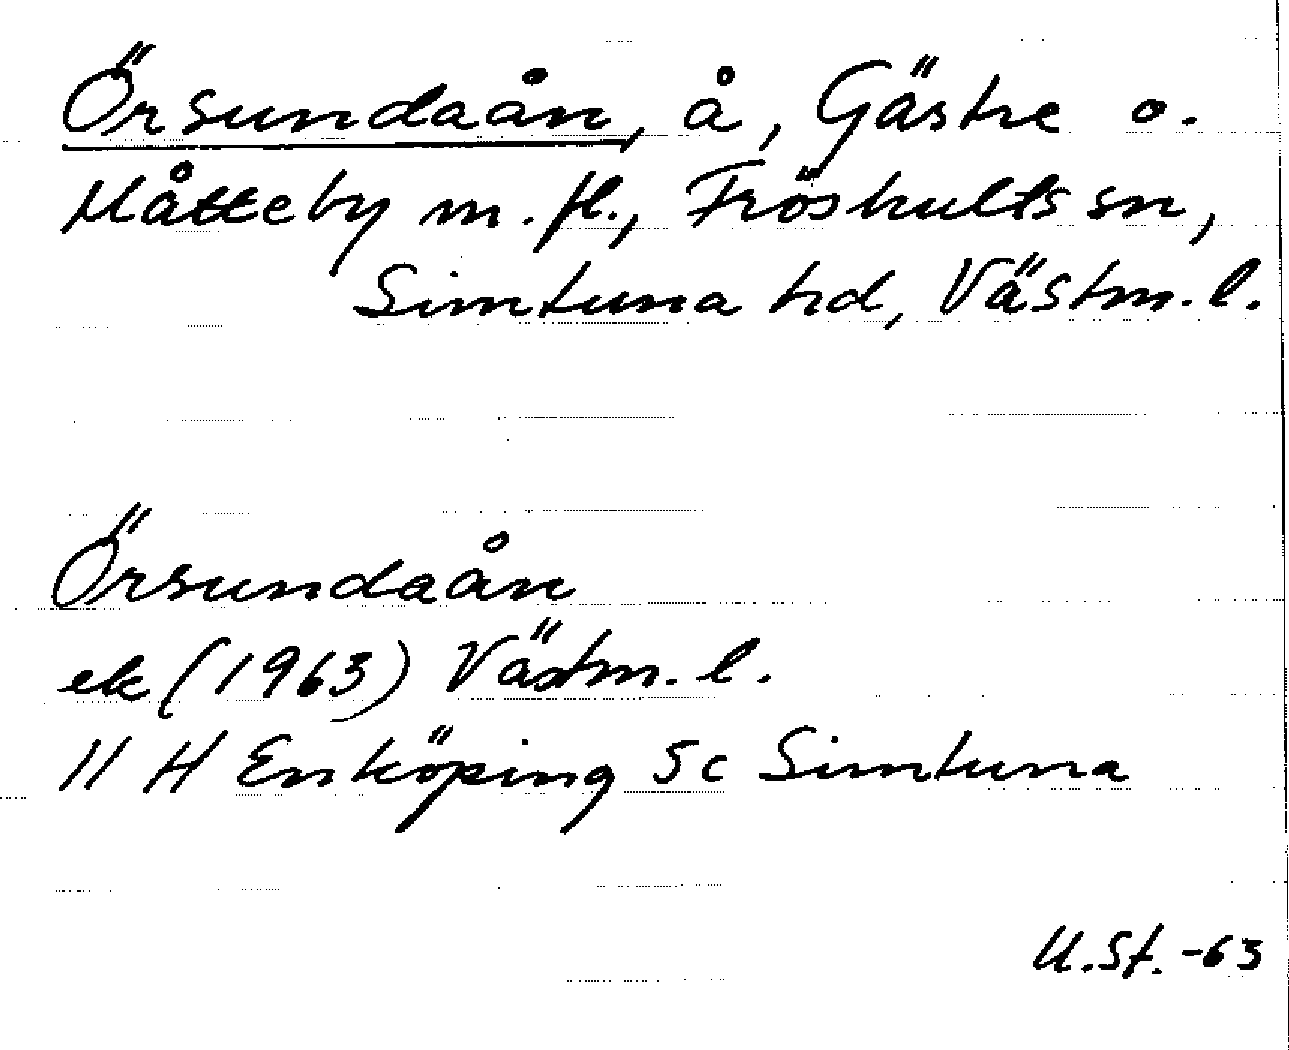 Örsundaån, å, Gästre o.
Måtteby m. fl., Fröshults sn,
Simtuna hd, Västm. l.
Örsundaån
ek (1963) Västm. l.
11 H Enköping 5c Simtuna
U.St. -63